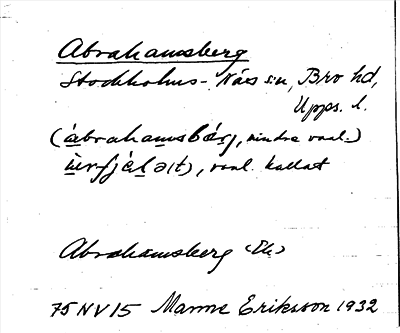 Abrahamsberg
Stockholms-Näs sn, Bro hd,
Upps. l.
(àbrahamsbärj, mindre vanl.)
vanl. kallat
Abrahamsberg (Ek)
75 NV 15 Manne Eriksson 1932